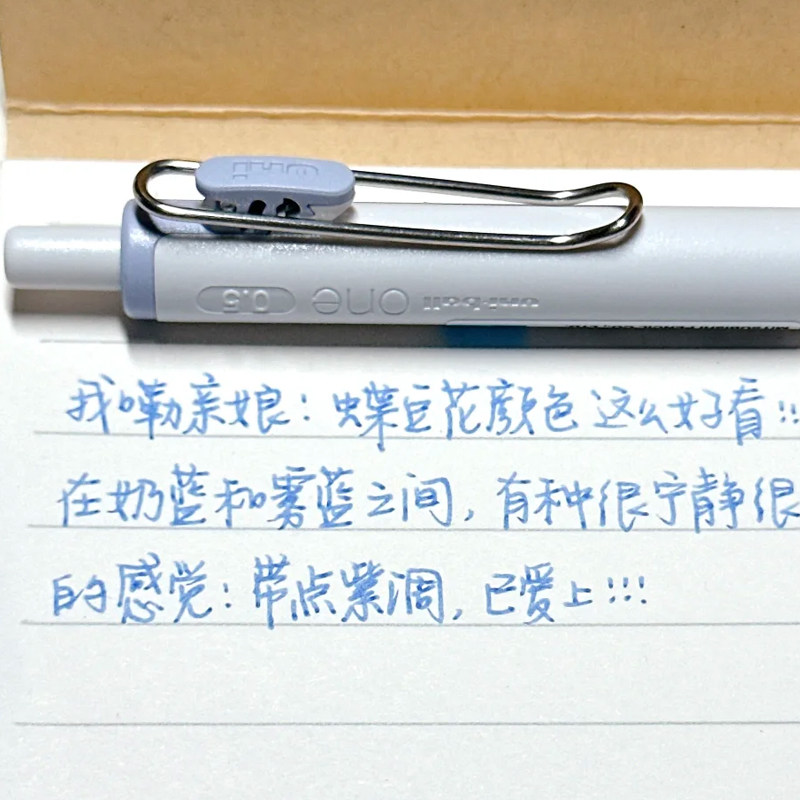 uni
0.5 one uni-ball
我嘞亲娘：蝶豆花颜色这么好看!!
在奶蓝和雾蓝之间，有种很宁静很
的感觉：带点紫调，已爱上!!!